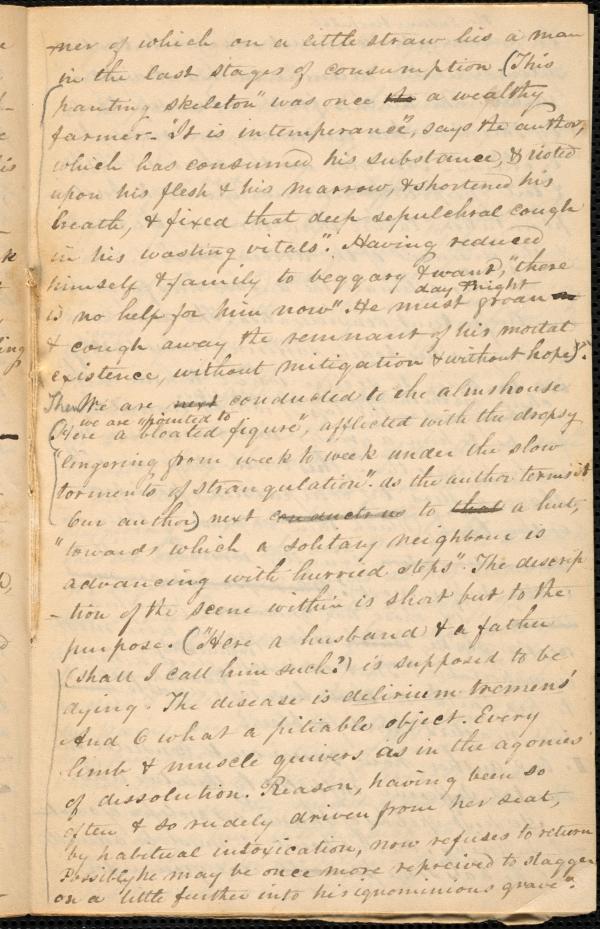 -ner of which on a little straw lies a man
in the last stages of consumption. (This
panting skeleton" was once the a wealthy
farmer- "It is intemperance", says the author,
which has consumed his substance, & rioted
upon his flesh & his marrow, & shortened his
breath, & fixed that deep sepulchral cough
in his wasting vitals". Having reduced
himself & family to beggary & want, "there
day & night
is no help for him now". He must groan
& cough away the remnant of his mortal
existence, without mitigation & without hope)".
Then We are next conducted to the almshouse
we are "pointed to
(Here a bloated figure", afflicted with the dropsy
"lingering from week to week under the slow
torments of strangulation". as the author terms it
Our author) next conducts us to that a hut,
"towards which a solitary neighbour is
advancing with hurried steps". The descrip
-tion of the scene within is short but to the
purpose. ("Here a husband & a father
(shall I call him such?) is supposed to be
dying. The disease is delirium tremens'
And O what a pitiable object. Every
limb & muscle quivers as in the agonies
of dissolution. Reason, having been so
often & so rudely driven from her seat,
by habitual intoxication, now refuses to return
Possibly he may be once more repreived to stagger
on a little further into his ignominious grave".